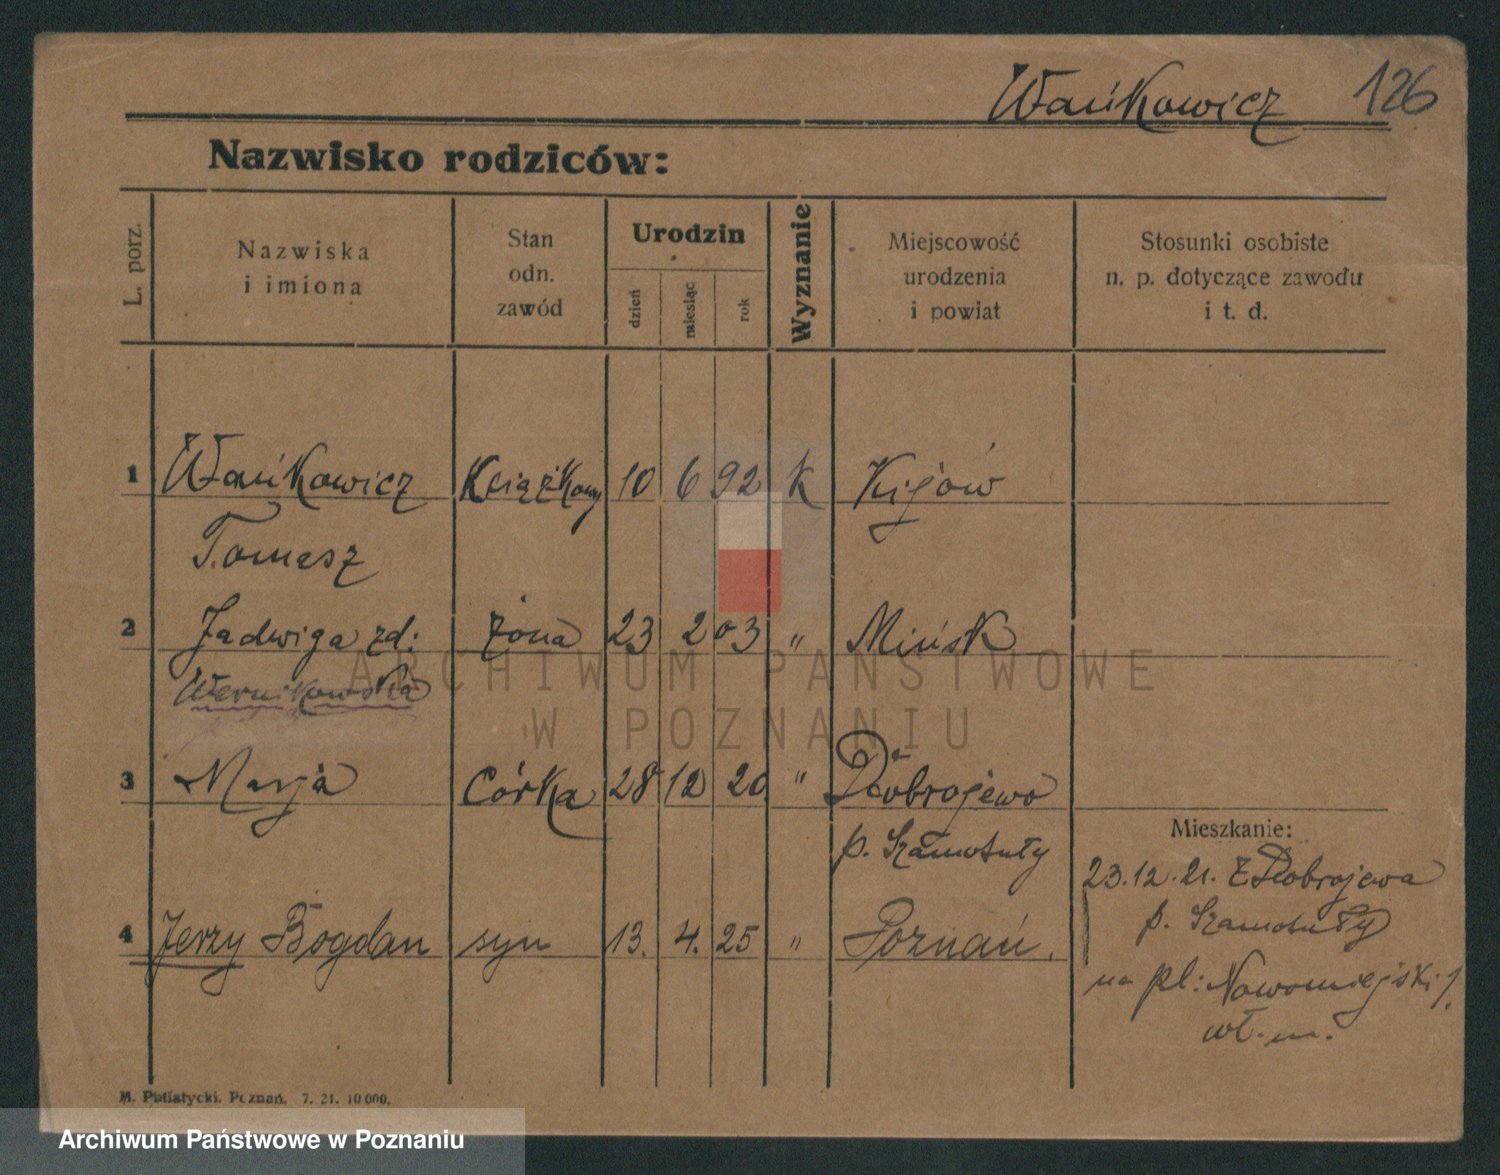 Wańkowicz 126
Nazwisko rodziców:
L. porz.
Nazwiska
i imiona
Stan
odn.
zawód
Urodzin
dzień
miesiąc
rok
Wyznanie
Miejscowość
urodzenia
i powiat
Stosunki osobiste
n. p. dotyczące zawodu
i t. d.
1 Wańkowicz Książkowy 10 6 92 k Kijów
Tomasz
2 Jadwiga zd: żona 23 2 03 " Mińsk
Wernikowska
3 Marja córka 28 12 20 " Dobrojewo
p. Szamotuły
4 Jerzy Bogdan syn 13. 4. 25 " Poznań.
Mieszkanie:
23.12.21. z Dobrojewa
p. Szamotuły
na pl: Nowomiejski 1.
wł. m.
M. Putiatycki. Poznań. 7. 21. 10 000.
ARCHIWUM PAŃSTWOWE
W POZNANIU
Archiwum Państwowe w Poznaniu